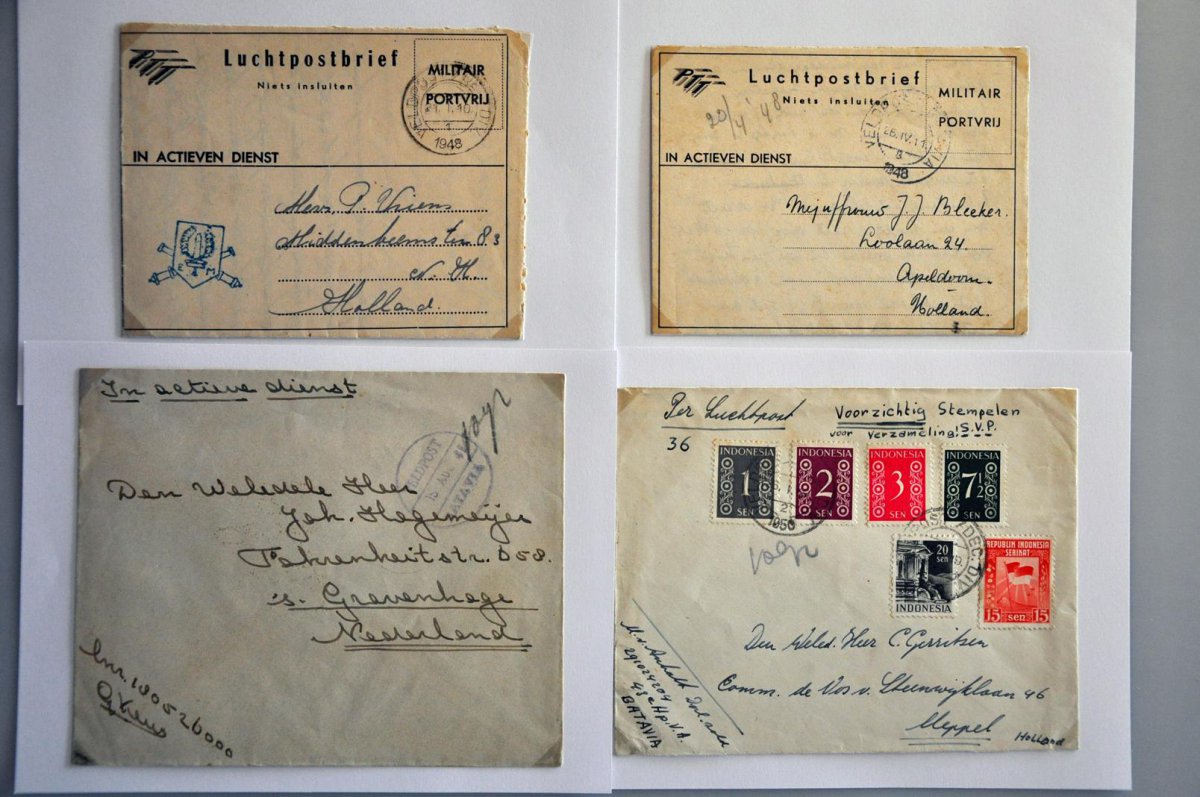 PTT
Luchtpostbrief
Niets insluiten
MILITAIR
PORTVRIJ
1948
IN ACTIEVEN DIENST
Heer P. Vriens
83
N. H.
Holland.
E M
PTT
Luchtpostbrief
Niets insluiten
MILITAIR
PORTVRIJ
20/4 '48
1948
IN ACTIEVEN DIENST
Mejuffrouw J. J. Bleeker.
Loolaan 24.
Apeldoorn.
Holland.
In actieve dienst
VELDPOST
BATAVIA
Den Weledele Heer
Joh. Hagemeijer
Fahrenheitstr. 658.
's. Gravenhage
Nederland
Per Luchtpost
36
Voorzichtig Stempelen
voor verzameling! S.V.P.
INDONESIA
1
SEN
INDONESIA
2
SEN
INDONESIA
3
SEN
INDONESIA
7½
SEN
1950
20
sen
INDONESIA
REPUBLIK INDONESIA
SERIKAT
15 sen 15
7 DEC. DIV
Den Weled. Heer C. Gerritsen
Comm. de Vos v. Steenwijklaan 46
Meppel
Holland
291024204
BATAVIA